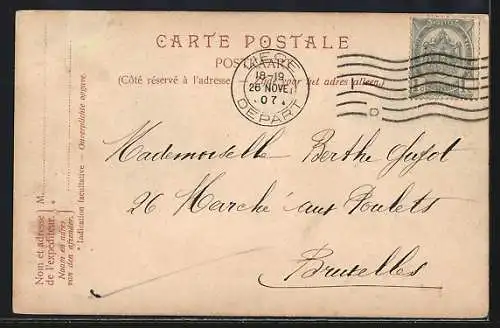 CARTE POSTALE
POSTKAART
(Côté réservé à l'adresse — voor het adres alleen.)
LIEGE
18-19
26 NOVE
07
DEPART
Mademoiselle Berthe Guyot
26 Marché aux Poulets
Bruxelles
Nom et adresse } M.
de l'expéditeur. } *
Naam en adres
van den afzender.
* Indication facultative — Onverplichte opgave.